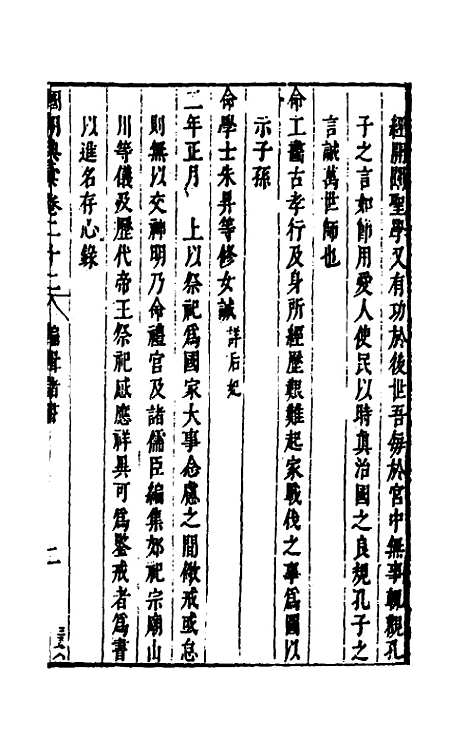 經開闢聖學又有功於後世吾每於宮中無事輒觀孔
子之言如節用愛人使民以時真治國之良規孔子之
言誠萬世師也
命工畫古孝行及身所經歷艱難起家戰伐之事為圖以
示子孫
命學士朱昇等修女誡 詳后妃
二年正月 上以祭祀為國家大事念慮之間儆戒或怠
則無以交神明乃命禮官及諸儒臣編集郊祀宗廟山
川等儀及歷代帝王祭祀感應祥異可為鑒戒者為書
以進名存心錄
國朝典彙卷二十二 編輯諸書 二